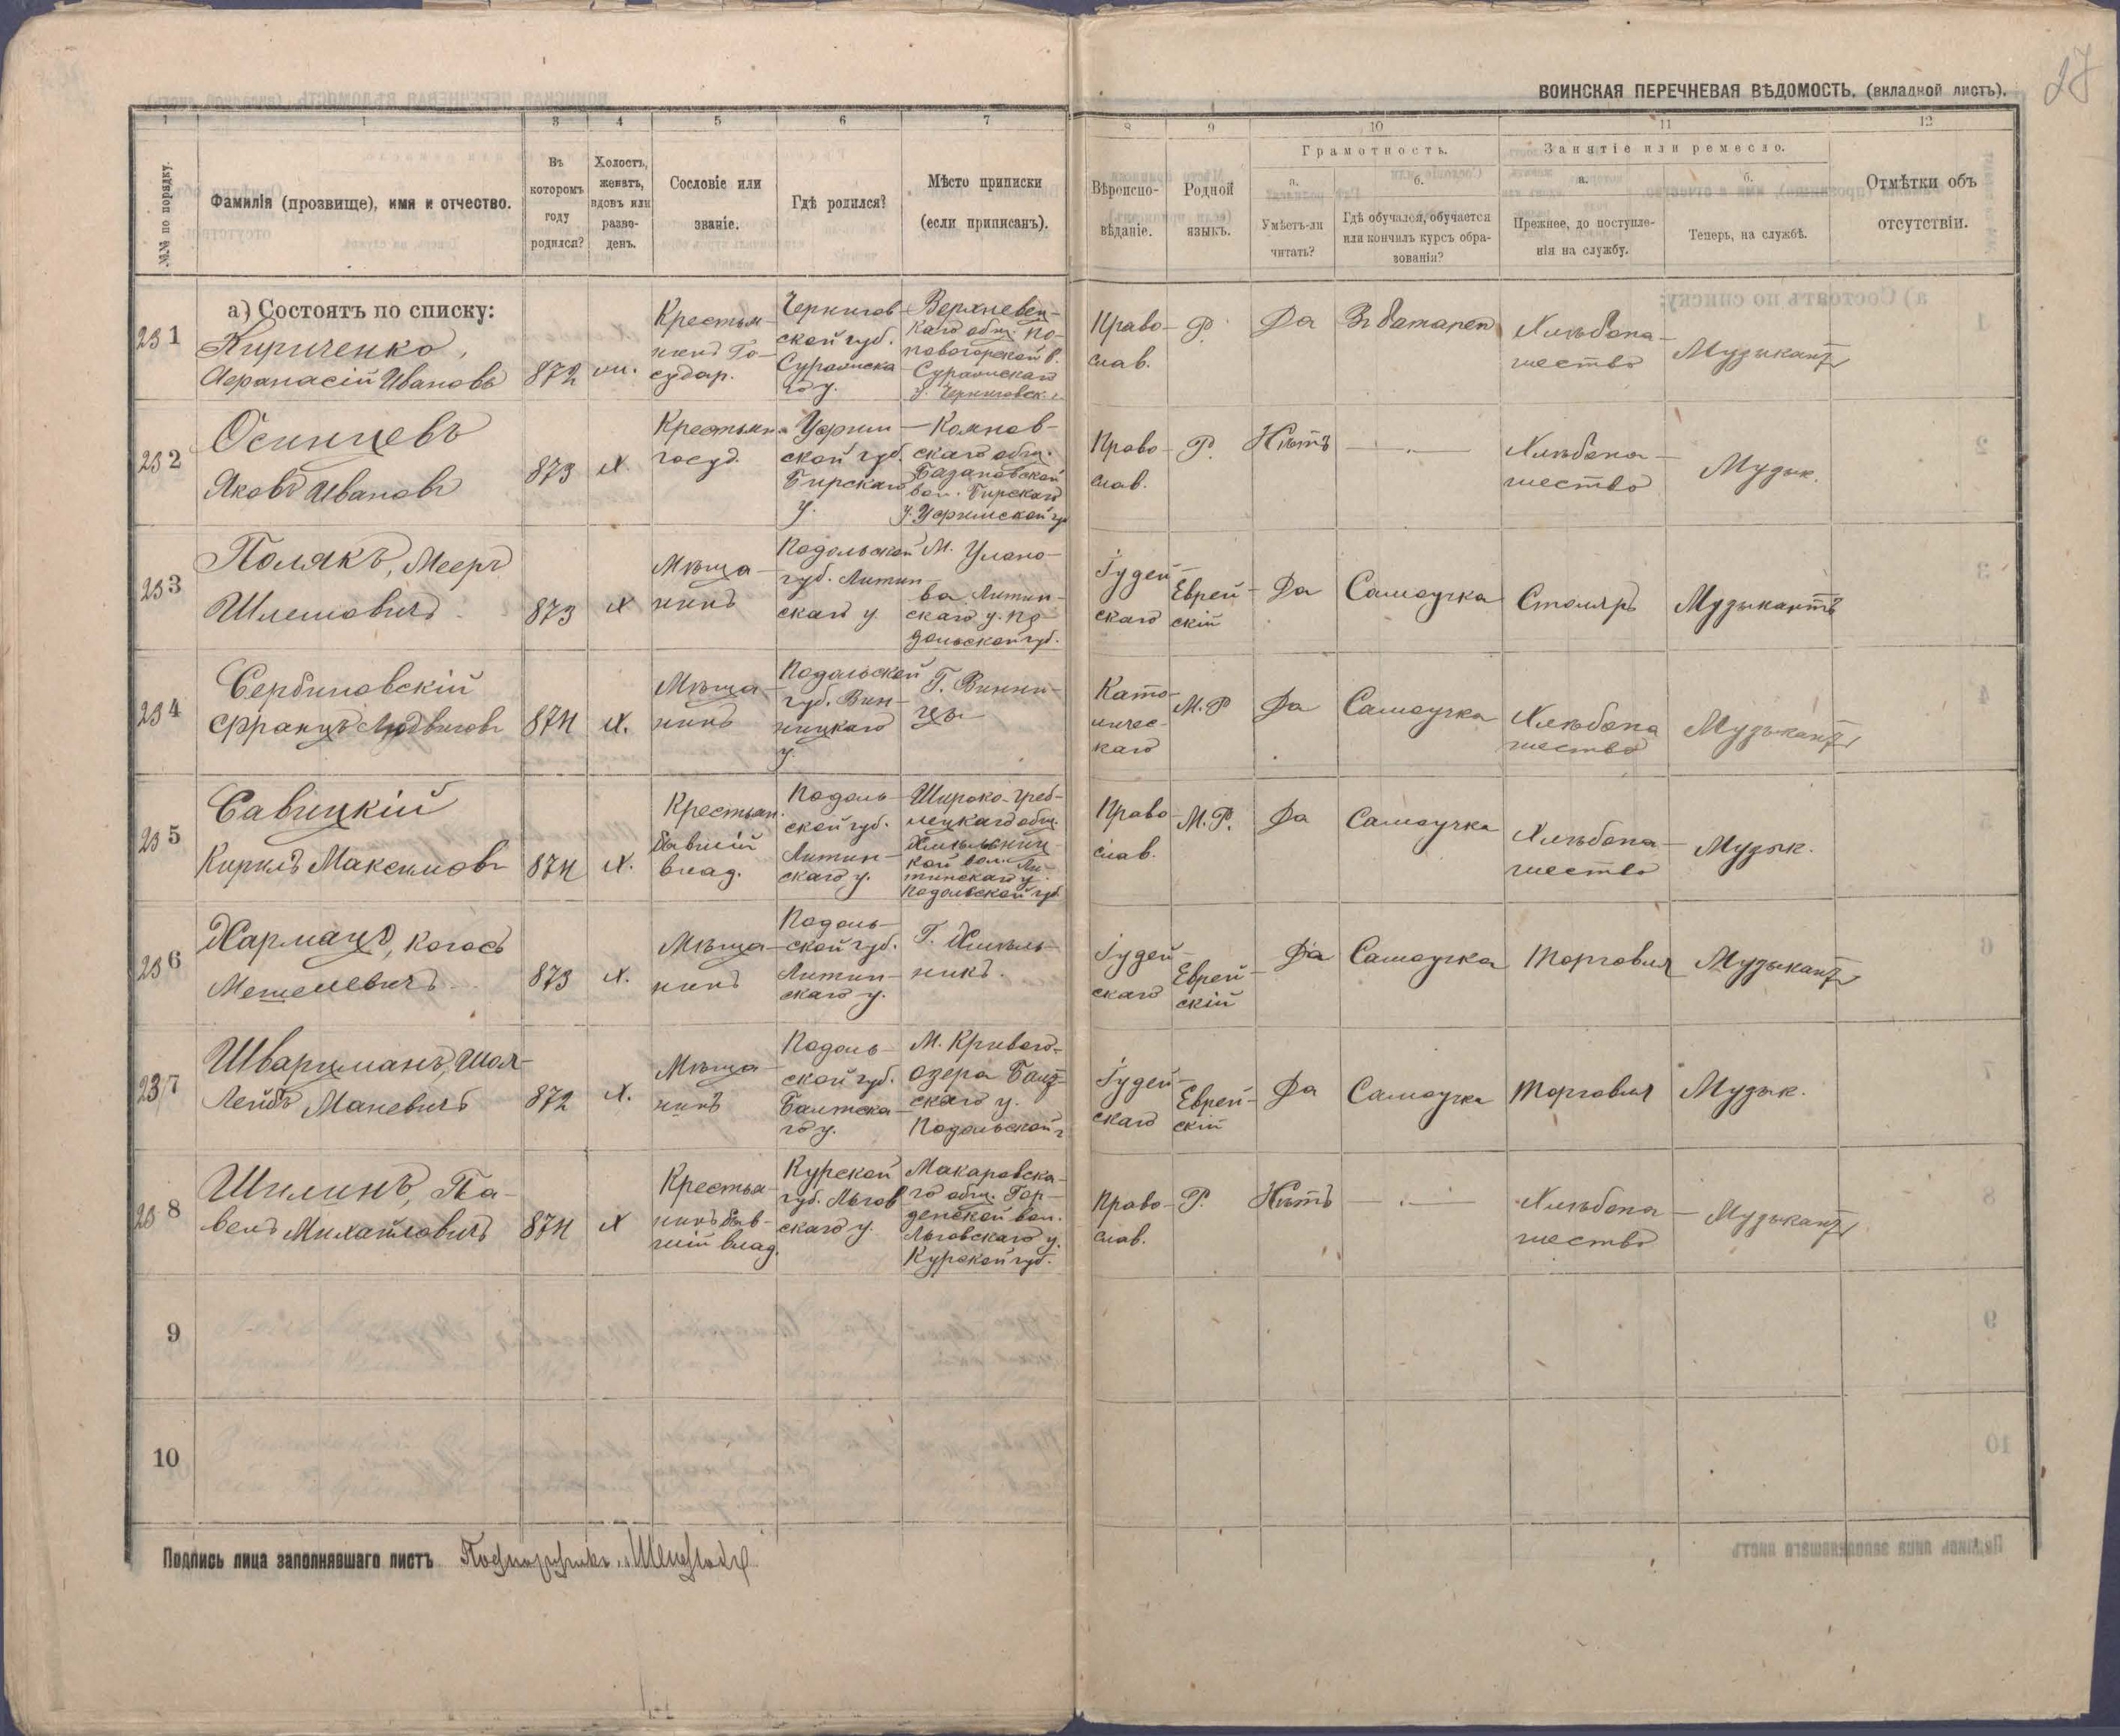 ВОИНСКАЯ ПЕРЕЧНЕВАЯ ВѢДОМОСТЬ. (вкладной листъ).
27
1 1 3 4 5 6 7 8 9 10 11 12
№№ по порядку.
Фамилія (прозвище), имя и отчество.
Въ
которомъ
году
родился?
Холостъ,
женатъ,
вдовъ или
разве-
денъ.
Сословіе или
званіе.
Гдѣ родился?
Мѣсто приписки
(если приписанъ).
Вѣроиспо-
вѣданіе.
Родной
языкъ.
Грамотность.
а.
Умѣетъ-ли
читать?
б.
Гдѣ обучался, обучается
или кончилъ курсъ обра-
зованія?
Занятіе или ремесло.
а.
Прежнее, до поступле-
нія на службу.
б.
Теперь, на службѣ.
Отмѣтки объ
отсутствіи.
а) Состоятъ по списку:
231
Кириченко,
Афанасій Ивановъ
872
Крестья-
нинъ Го-
судар.
Чернигов-
ской губ.
Суражска
го у.
каго общ. По-
повогорской в.
Суражскаго
у. Черниговск. г.
Право-
слав.
Р.
Да
Въ батареи
Хлѣбопа-
шество
Музыкантъ
232
Осинцевъ
Яковъ Ивановъ
873
Х
госуд.
Уфим
ской губ.
Бирскаго
у.
скаго общ.
вол. Бирскаго
у. Уфимской гу
Право-
слав.
Р.
Нѣтъ
— · —
Хлѣбопа-
шество
Музык.
233
Полякъ, Мееръ
Шлемовичъ
873
Х
Мѣща-
нинъ
Подольской
губ. Литин-
скаго у.
М. Улано-
ва Литин-
скаго у. По
дольской губ.
Іудей-
скаго
Еврей-
скій
Да
Самоучка
Столяръ
Музыкантъ
234
Сербиновскій
Францъ Людвиговъ
874
Х.
Мѣща-
нинъ
Подольской
губ. Вин-
ницкаго
у.
Г. Винни-
цы
Като-
личес-
каго
М.Р
Да
Самоучка
Хлѣбопа
шество
Музыкантъ
235
Савицкій
Кирилъ Максимовъ
874
Х.
Крестьян.
бывшій
влад.
Подоль-
ской губ.
Литин-
скаго у.
Широко-Греб-
лецкаго общ.
Хмѣльниц-
кой вол. Ли-
тинскаго у.
Подольской губ
Право-
слав.
М.Р.
Да
Самоучка
Хлѣбопа-
шество
Музык.
236
873
Х.
Мѣща-
нинъ
Подоль-
ской губ.
Литин-
скаго у.
Г. Хмѣль-
никъ.
Іудей-
скаго
Еврей-
скій
Да
Самоучка
Торговля
Музыкантъ
237
Шварцманъ, Шол-
Лейбъ Маневичъ
872
Х.
Мѣща-
нинъ
Подоль-
ской губ.
Балтска-
го у.
М. Криваго-
озера Балт-
скаго у.
Подольской г
Іудей-
скаго
Еврей-
скій
Да
Самоучка
Торговля
Музык.
238
Шилинъ, Па-
велъ Михайловичъ
874
Х
Крестья-
нинъ быв-
шій влад.
Курской
губ. Льгов
скаго у.
Макаровска-
го общ. Гор-
денской вол.
Льговскаго у.
Курской губ.
Право-
слав.
Р.
Нѣтъ
— · —
Хлѣбопа-
шество
Музыкантъ
9
10
Подпись лица заполнявшаго листъ Подпоручикъ